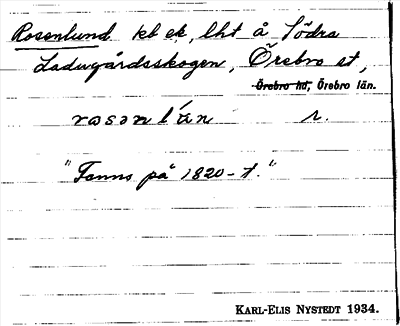 Rosenlund kb ek, lht å Södra
Ladugårdsskogen, Örebro st,
Örebro hd, Örebro län.
r.
"Fanns på 1820-t."
KARL-ELIS NYSTEDT 1934.